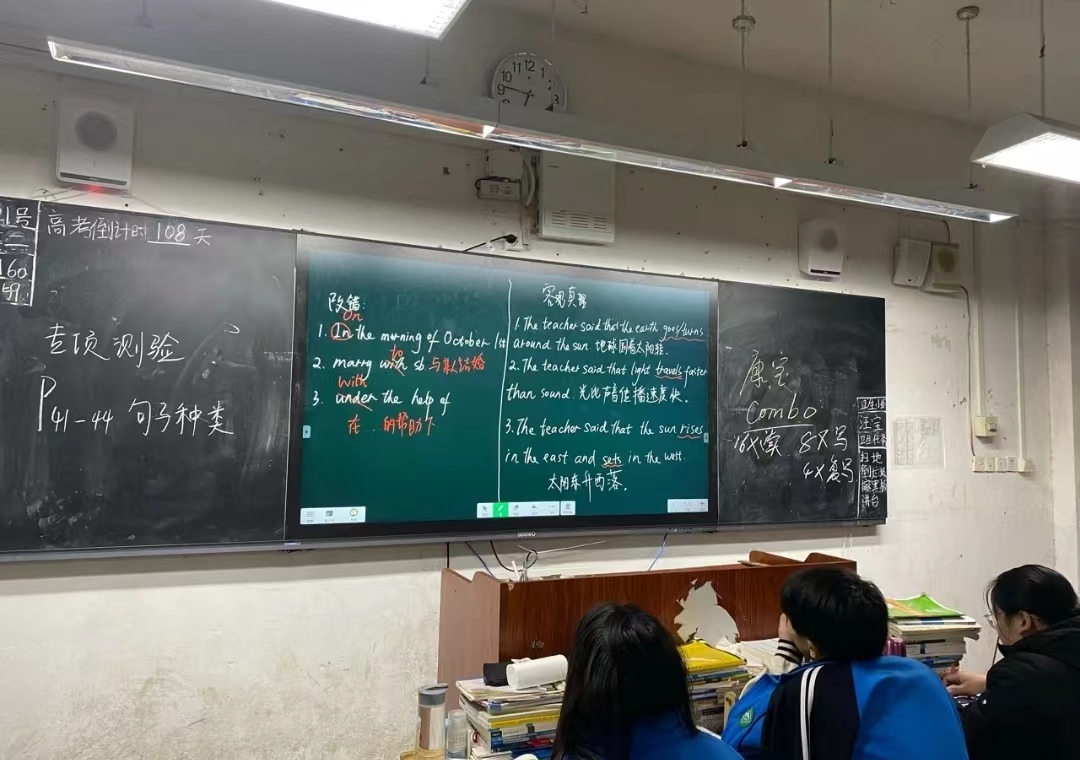 1号
160
49
高考倒计时108天
专项测验
P41-44 句子种类
改错:
On
1. In the morning of October 1st
to
2. marry with sb 与某人结婚
with
3. under the help of
在...的帮助下
客观真理
1. The teacher said that the earth goes/turns
around the sun. 地球围着太阳转.
2. The teacher said that light travels faster
than sound. 光比声音传播速度快.
3. The teacher said that the sun rises
in the east and sets in the west.
太阳东升西落.
康宝
Combo
16X读 8X写
4X复写
扫地
讲台
10 11 12 1
9
3